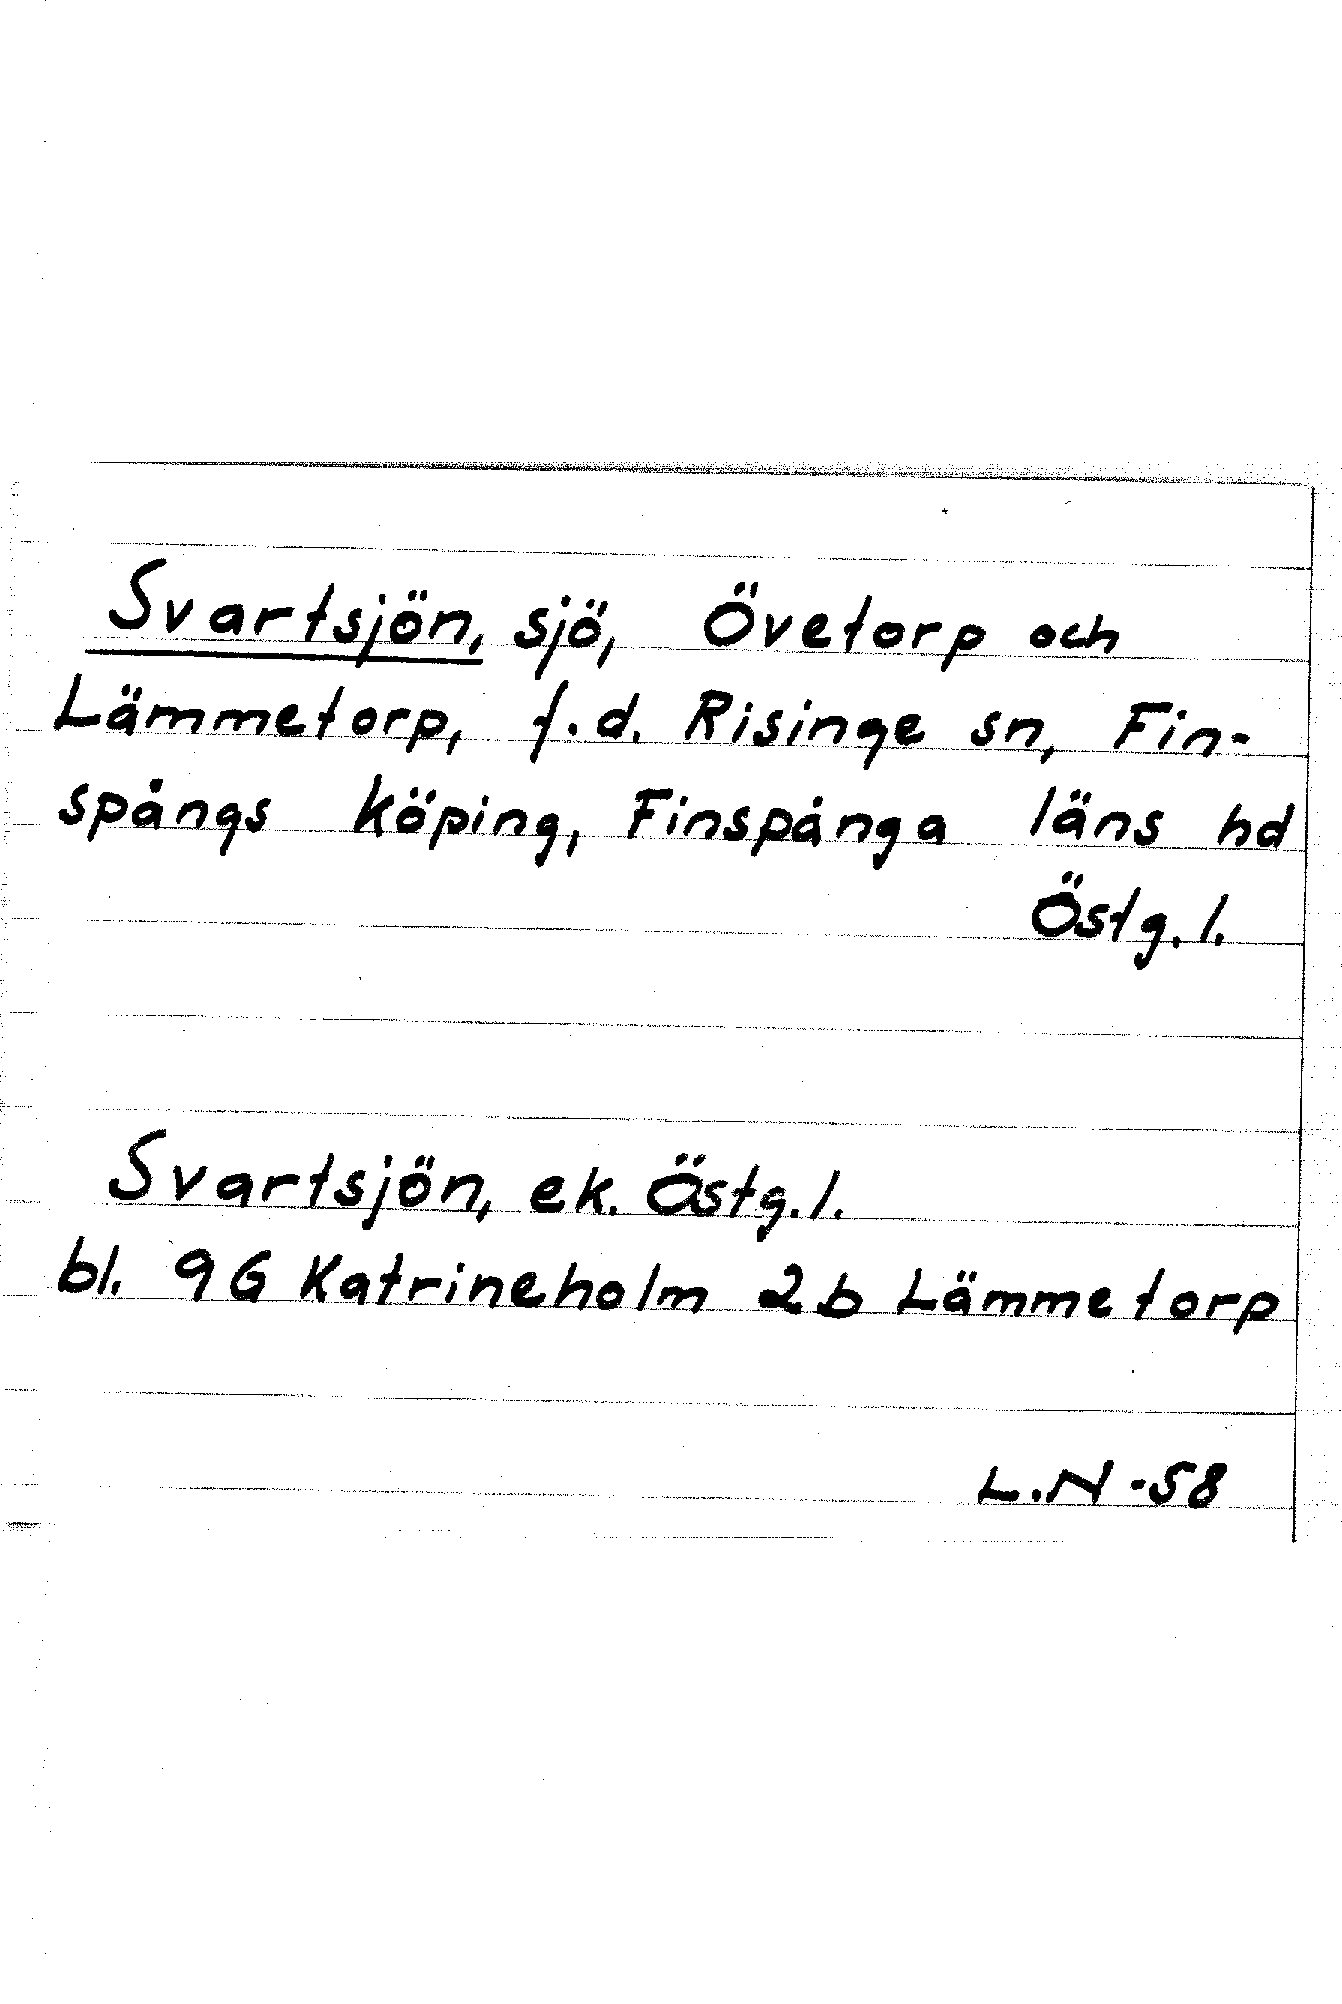 Svartsjön, sjö, Övetorp och
Lämmetorp, f.d. Risinge sn, Fin-
spångs köping, Finspånga läns hd
Östg. l.
Svartsjön, ek. Östg. l.
bl. 9G Katrineholm 2b Lämmetorp
L.N -58